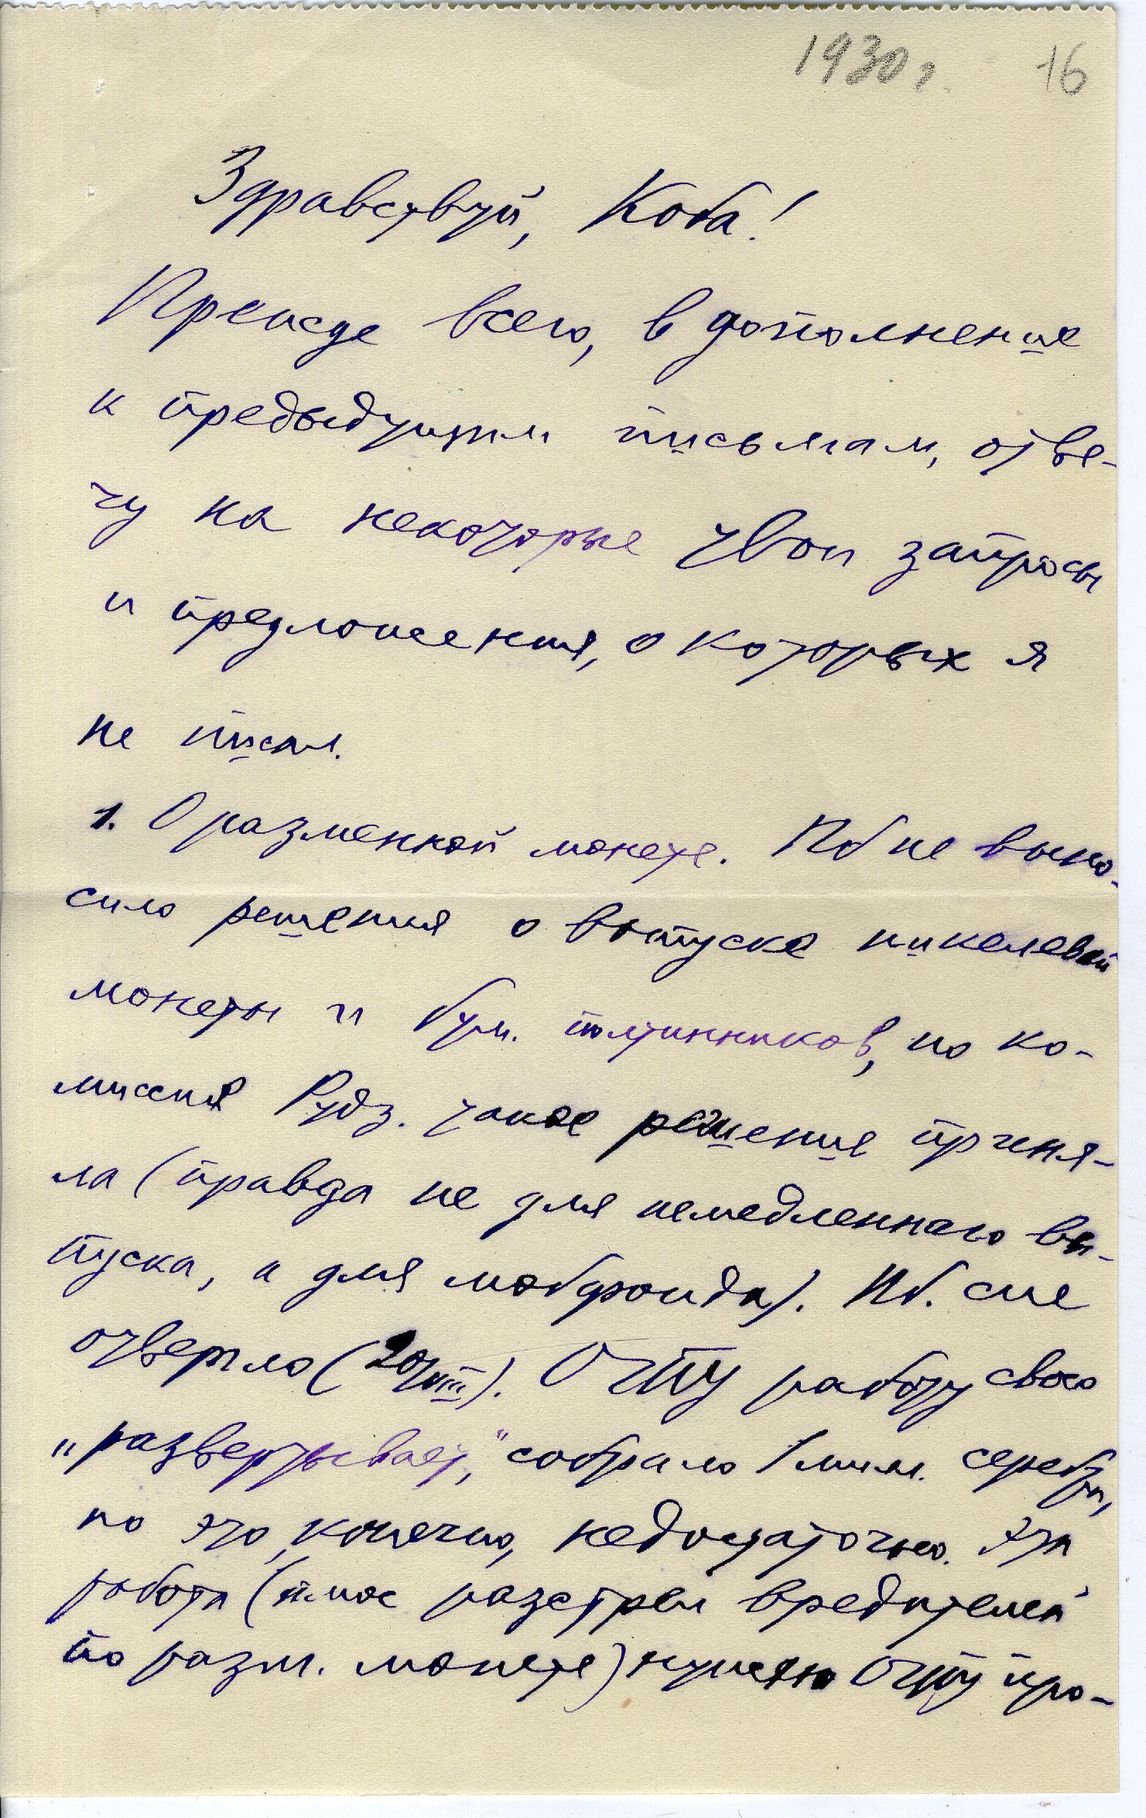 1930 г. 16
Здравствуй, Коба!
Прежде всего, в дополнение
к предыдущим письмам, отве-
чу на некоторые твои запросы
и предложения, о которых я
не писал.
1. О разменной монете. Пб не выно-
сило решения о выпуске никелевой
монеты и бум. полтинников, но ко-
миссия Рудз. такое решение приня-
ла (правда не для немедленного вы-
пуска, а для мобфонда). Пб. сие
отвергло (20/VIII). ОГПУ работу свою
„развертывает", собрало 1 милл. серебра,
но это, конечно, недостаточно. Эта
работа (плюс разстрел вредителей
по разм. монете) нужно ОГПУ про-